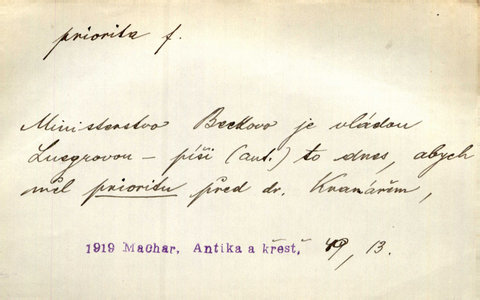 priorita f.
Ministerstvo Beckovo je vládou
Luegrovou – píši (aut.) to dnes, abych
měl prioritu před dr. Kramářem,
1919 Machar, Antika a křesť, 49, 13.